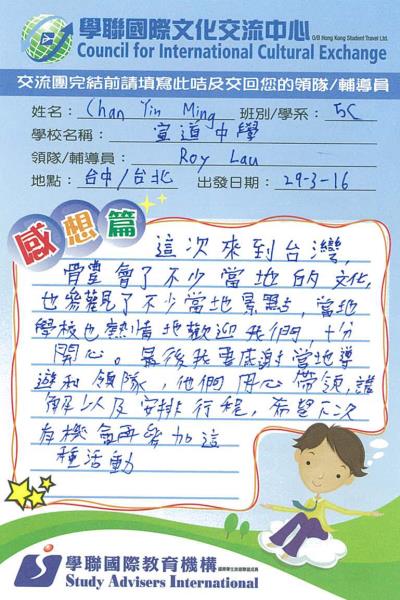 學聯國際文化交流中心 O/B Hong Kong Student Travel Ltd.
Council for International Cultural Exchange
交流團完結前請填寫此咭及交回您的領隊/輔導員
姓名：Chan Yin Ming 班別/學系：5C
學校名稱：宣道中學
領隊/輔導員：Roy Lau
地點：台中/台北 出發日期：29-3-16
感想篇
這次來到台灣，
體會了不少當地的文化，
也參觀了不少當地景點，當地
學校也熱情地歡迎我們，十分
開心。最後我要感謝當地導
遊和領隊，他們用心帶領，講
解以及安排行程，希望下次
有機會再參加這
種活動
學聯國際教育機構
Study Advisers International